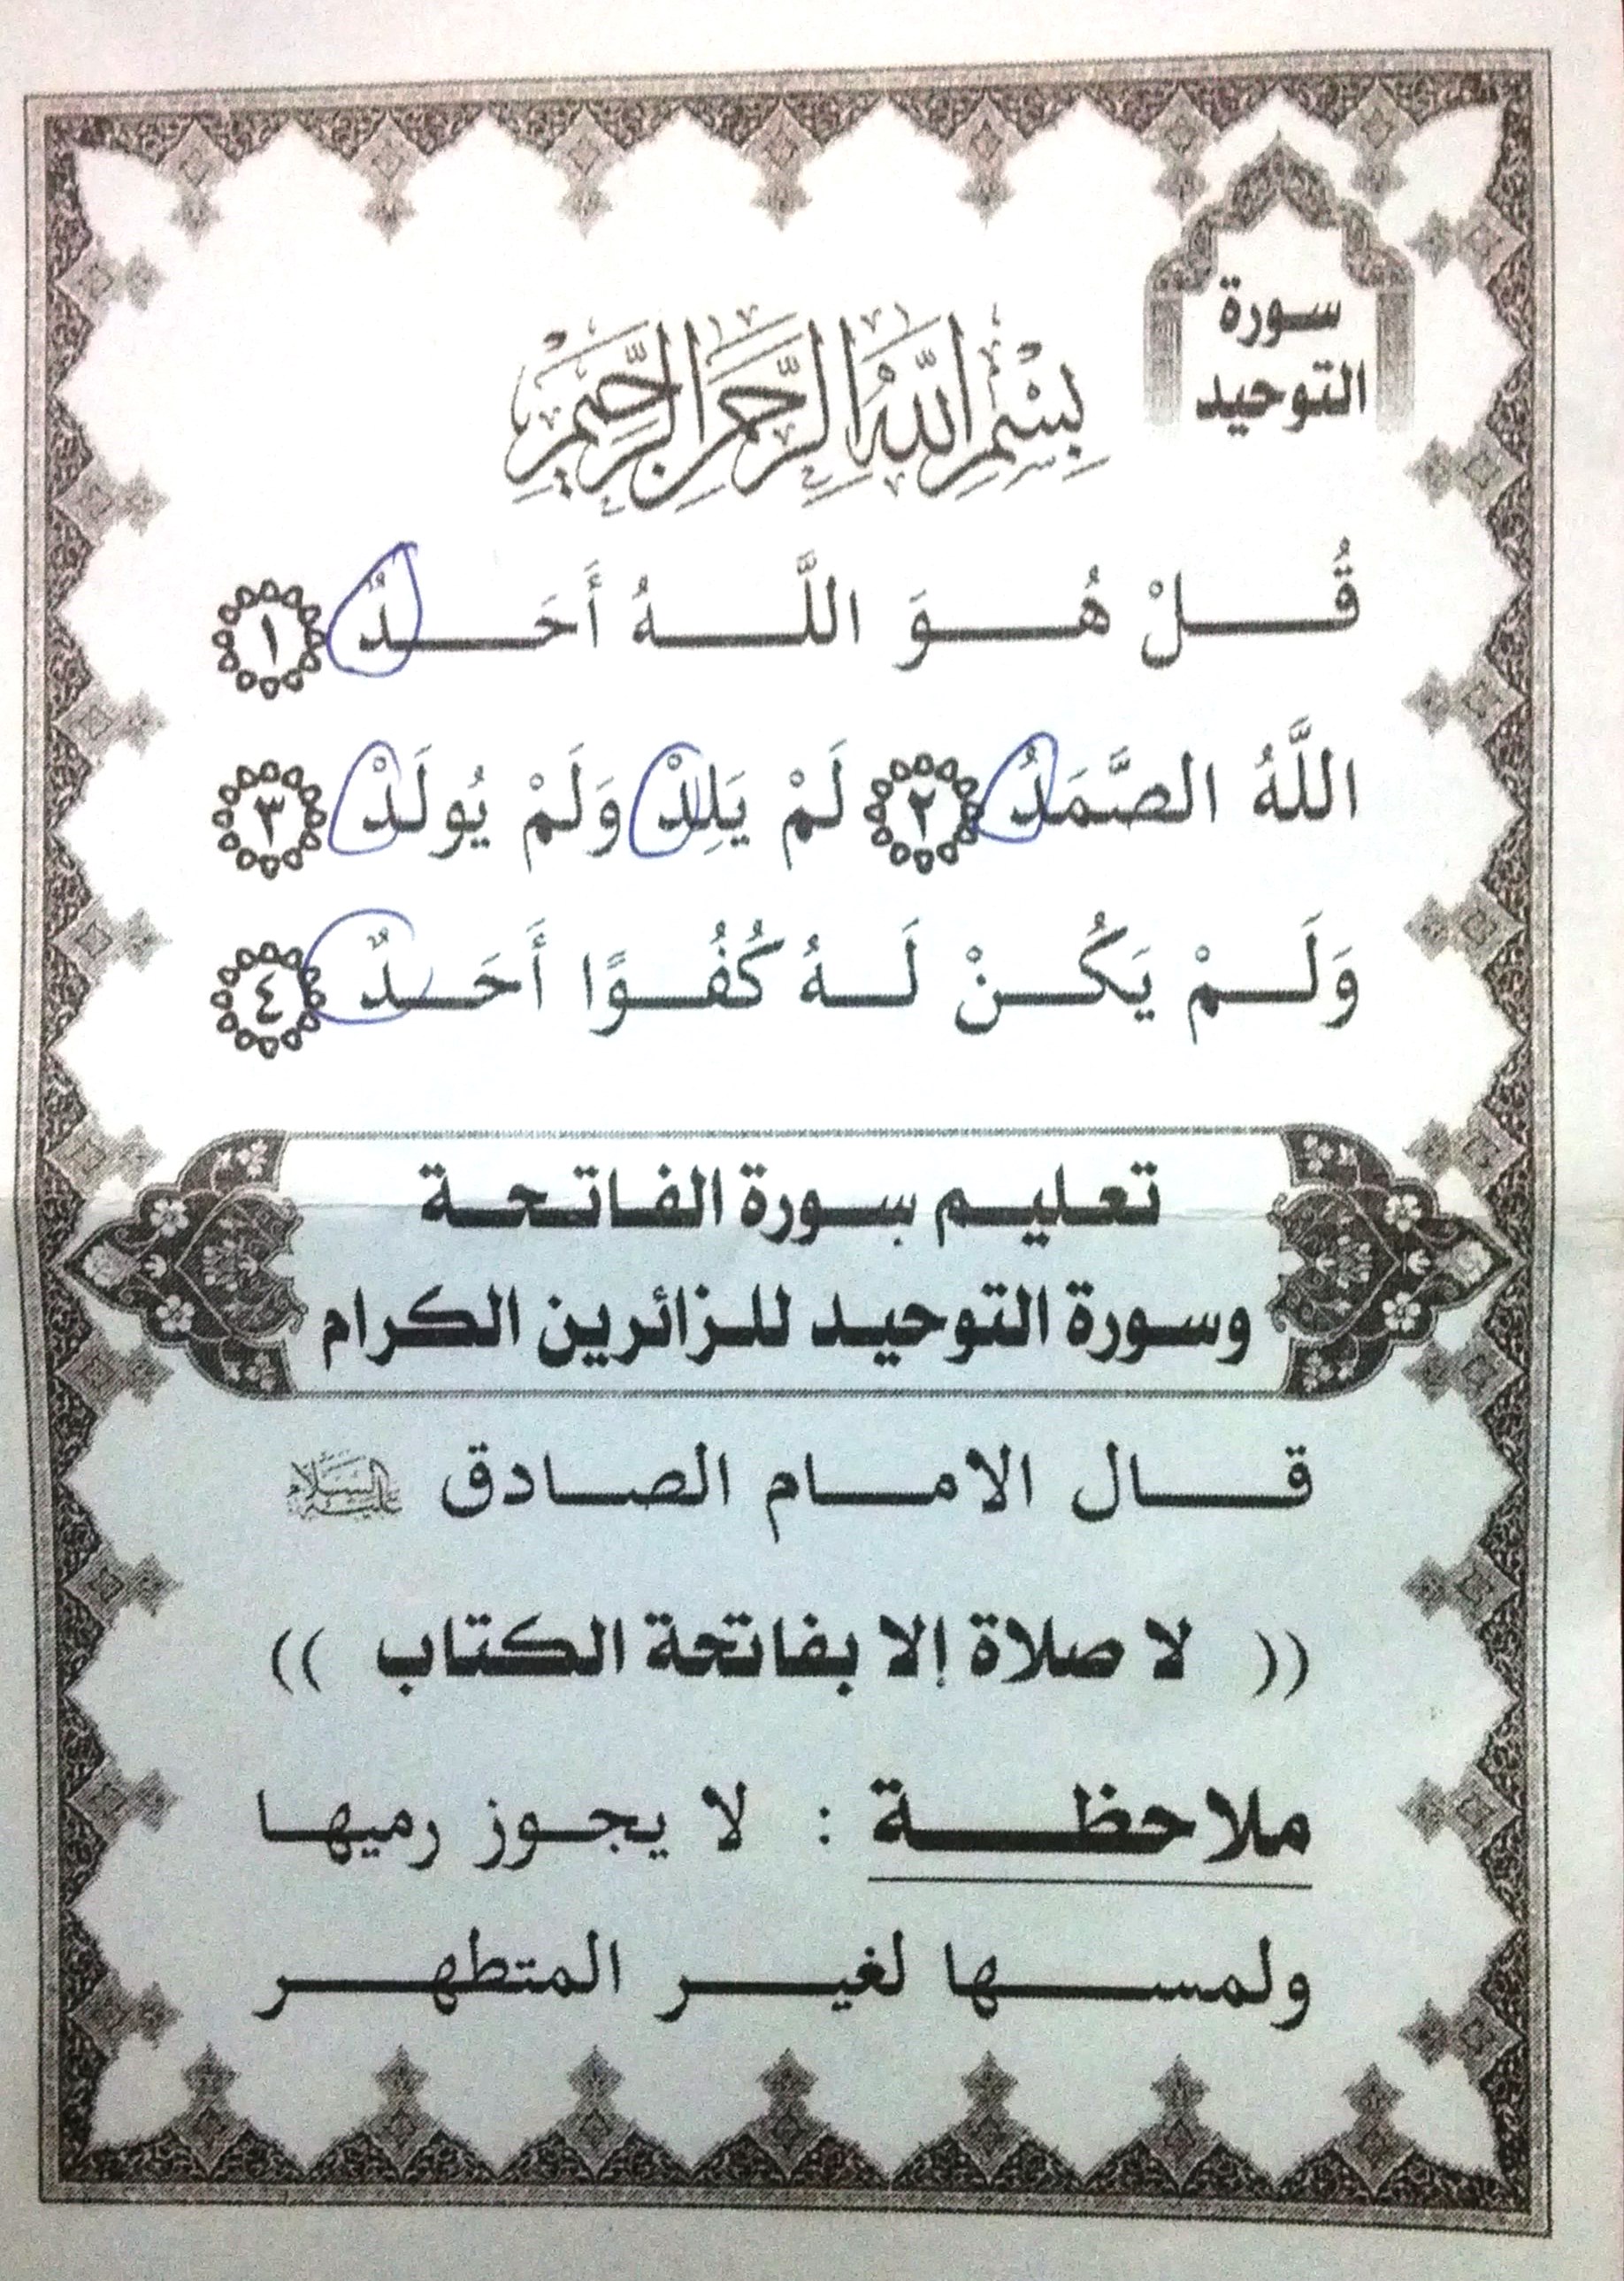 سورة
التوحيد
بِسْمِ اللَّهِ الرَّحْمَنِ الرَّحِيمِ
قُلْ هُوَ اللَّهُ أَحَدٌ ١
اللَّهُ الصَّمَدُ ٢ لَمْ يَلِدْ وَلَمْ يُولَدْ ٣
وَلَمْ يَكُنْ لَهُ كُفُوًا أَحَدٌ ٤
تعليم سورة الفاتحة
وسورة التوحيد للزائرين الكرام
قال الامام الصادق عليه السلام
(( لا صلاة إلا بفاتحة الكتاب ))
ملاحظة : لا يجوز رميها
ولمسها لغير المتطهر